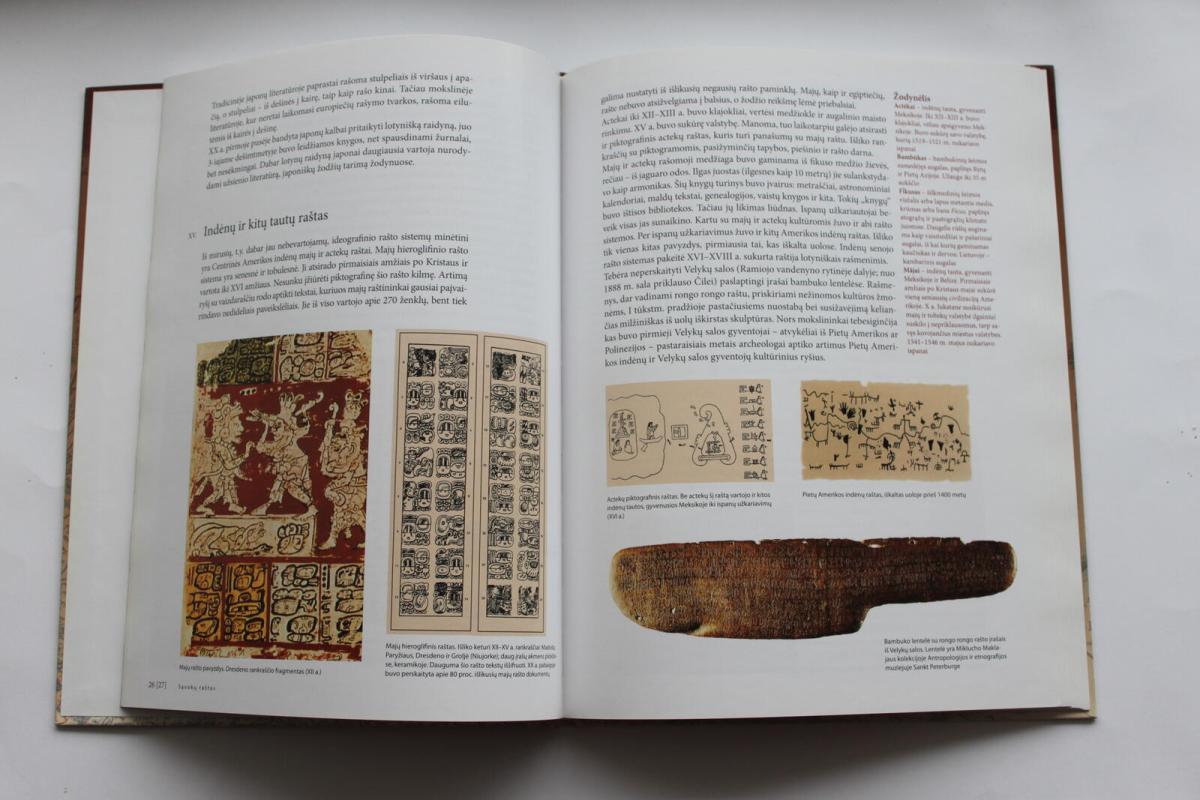 Tradicinėje japonų literatūroje paprastai rašoma stulpeliais iš viršaus į apa-
čią, o stulpeliai – iš dešinės į kairę, taip kaip rašo kinai. Tačiau mokslinėje
literatūroje, kur neretai laikomasi europiečių rašymo tvarkos, rašoma eilu-
tėmis iš kairės į dešinę.
XX a. pirmoje pusėje bandyta japonų kalbai pritaikyti lotynišką raidyną, juo
3-iajame dešimtmetyje buvo leidžiamos knygos, net spausdinami žurnalai,
bet nesėkmingai. Dabar lotynų raidyną japonai daugiausia vartoja nurody-
dami užsienio literatūrą, japoniškų žodžių tarimą žodynuose.
XV. Indėnų ir kitų tautų raštas
Iš mirusių, t.y. dabar jau nebevartojamų, ideografinio rašto sistemų minėtini
yra Centrinės Amerikos indėnų majų ir actekų raštai. Majų hieroglifinio rašto
sistema yra senesnė ir tobulesnė. Ji atsirado pirmaisiais amžiais po Kristaus ir
vartota iki XVI amžiaus. Nesunku įžiūrėti piktografinę šio rašto kilmę. Artimą
ryšį su vaizdaraščiu rodo aptikti tekstai, kuriuos majų raštininkai gausiai paįvai-
rindavo nedideliais paveikslėliais. Jie iš viso vartojo apie 270 ženklų, bent tiek
Majų rašto pavyzdys. Dresdeno rankraščio fragmentas (XII a.)
Majų hieroglifinis raštas. Išliko keturi XII–XV a. rankraščiai: Madrido,
Paryžiaus, Dresdeno ir Groljė (Niujorke); daug įrašų akmens pastatuo-
se, keramikoje. Dauguma šio rašto tekstų iššifruoti. XX a. pabaigoje
buvo perskaityta apie 80 proc. išlikusių majų rašto dokumentų
26 [27] Sąvokų raštas
galima nustatyti iš išlikusių negausių rašto paminklų. Majų, kaip ir egiptiečių,
rašte nebuvo atsižvelgiama į balsius, o žodžio reikšmę lėmė priebalsiai.
Actekai iki XII–XIII a. buvo klajokliai, vertėsi medžiokle ir augalinio maisto
rinkimu. XV a. buvo sukūrę valstybę. Manoma, tuo laikotarpiu galėjo atsirasti
ir piktografinis actekų raštas, kuris turi panašumų su majų raštu. Išliko ran-
kraščių su piktogramomis, pasižyminčių tapybos, piešinio ir rašto darna.
Majų ir actekų rašomoji medžiaga buvo gaminama iš fikuso medžio žievės,
rečiau – iš jaguaro odos. Ilgas juostas (ilgesnes kaip 10 metrų) jie sulankstyda-
vo kaip armonikas. Šių knygų turinys buvo įvairus: metraščiai, astronominiai
kalendoriai, maldų tekstai, genealogijos, vaistų knygos ir kita. Tokių „knygų“
buvo ištisos bibliotekos. Tačiau jų likimas liūdnas. Ispanų užkariautojai be-
veik visas jas sunaikino. Kartu su majų ir actekų kultūromis žuvo ir abi rašto
sistemos. Per ispanų užkariavimus žuvo ir kitų Amerikos indėnų raštas. Išliko
tik vienas kitas pavyzdys, pirmiausia tai, kas iškalta uolose. Indėnų senojo
rašto sistemas pakeitė XVI–XVIII a. sukurta raštija lotyniškais rašmenimis.
Tebėra neperskaityti Velykų salos (Ramiojo vandenyno rytinėje dalyje; nuo
1888 m. sala priklauso Čilei) paslaptingi įrašai bambuko lentelėse. Rašme-
nis, dar vadinami rongo rongo raštu, priskiriami nežinomos kultūros žmo-
nėms, I tūkstm. pradžioje pastačiusiems nuostabą bei susižavėjimą kelian-
čias milžiniškas iš uolų iškirstas skulptūras. Nors mokslininkai tebesiginčija
kas buvo pirmieji Velykų salos gyventojai – atvykėliai iš Pietų Amerikos ar
Polinezijos – pastaraisiais metais archeologai aptiko artimus Pietų Ameri-
kos indėnų ir Velykų salos gyventojų kultūrinius ryšius.
Žodynėlis
Actekai – indėnų tauta, gyvenanti
Meksikoje. Iki XII–XIII a. buvo
klajokliai, vėliau apsigyveno Mek-
sikoje. Buvo sukūrę savo valstybę,
kurią 1519–1521 m. nukariavo
ispanai
Bambukas – bambukinių šeimos
sumedėjęs augalas, paplitęs Rytų
ir Pietų Azijoje. Užauga iki 35 m
aukščio
Fikusas – šilkmedinių šeimos
visžalis arba lapus metantis medis,
krūmas arba liana Ficus, paplitęs
atogrąžų ir paatogrąžių klimato
juostose. Daugelis rūšių augina-
ma kaip vaismedžiai ir pašariniai
augalai, iš kai kurių gaminamas
kaučiukas ir dervos. Lietuvoje –
kambarinis augalas
Majai – indėnų tauta, gyvenanti
Meksikoje ir Belize. Pirmaisiais
amžiais po Kristaus majai sukūrė
vieną seniausių civilizacijų Ame-
rikoje. X a. Jukatane susikūrusi
majų ir toltekų valstybė ilgainiui
susiskaldė į nepriklausomus, tarp sa-
vęs kovojančius miestus valstybes.
1541–1546 m. majus nukariavo
ispanai
Actekų piktografinis raštas. Be actekų šį raštą vartojo ir kitos
indėnų tautos, gyvenusios Meksikoje iki ispanų užkariavimų
(XVI a.)
Pietų Amerikos indėnų raštas, iškaltas uoloje prieš 1400 metų
Bambuko lentelė su rongo rongo rašto įrašais
iš Velykų salos. Lentelė yra Miklucho Makla-
jaus kolekcijoje Antropologijos ir etnografijos
muziejuje Sankt Peterburge